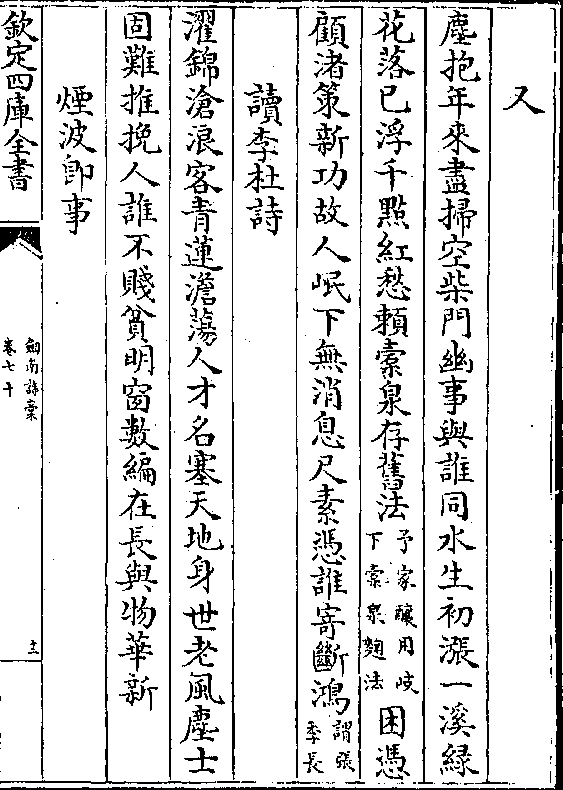 又
塵抱年來盡掃空柴門幽事與誰同水生初漲一溪緑
花落已浮千點紅愁頼橐泉存舊法予家釀用岐下橐泉麴法困憑
顧渚策新功故人岷下無消息尺素憑誰寄斷鴻謂張季長
讀李杜詩
濯錦滄浪客青蓮澹蕩人才名塞天地身世老風塵士
固難推挽人誰不賤貧明窗數編在長與物華新
煙波即事
欽定四庫全書
劒南詩稾
卷七十
十三